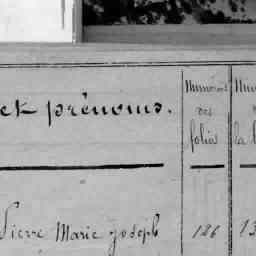 et prénoms.
Numéros des folios
Pierre Marie Joseph 126